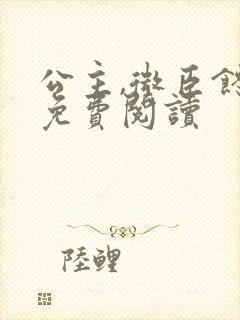 公主,微臣
免費閱讀
陸鯉